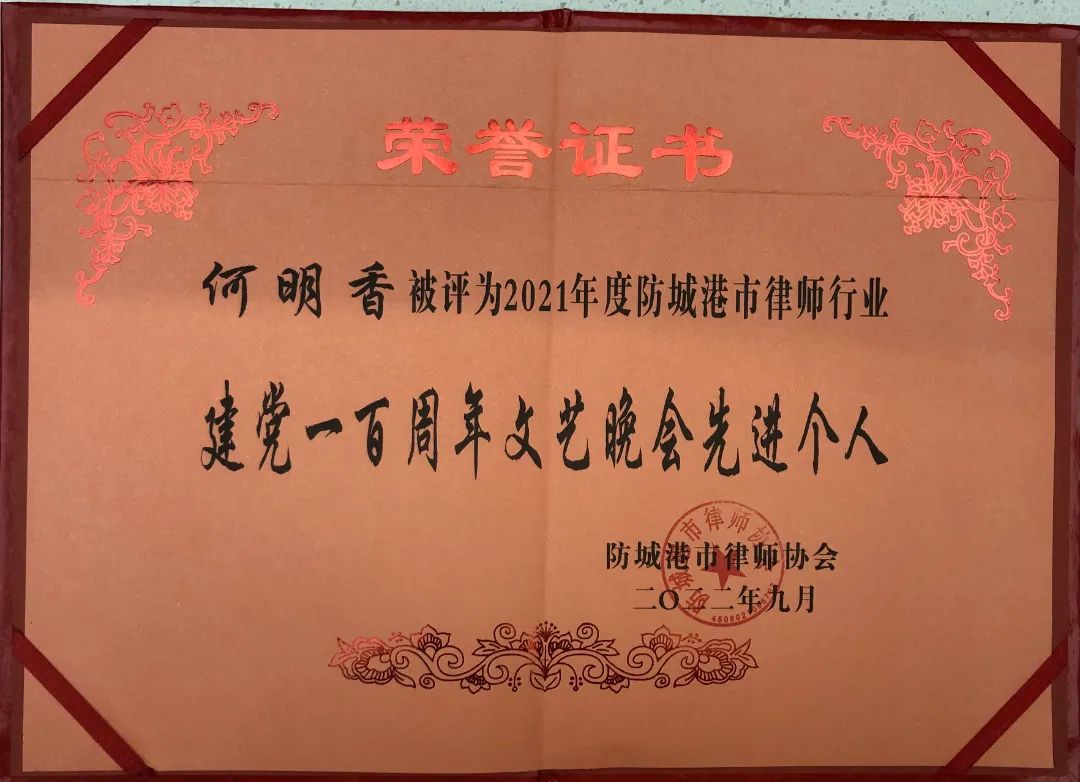 荣誉证书
何明香被评为2021年度防城港市律师行业
建党一百周年文艺晚会先进个人
防城港市律师协会
二〇二二年九月